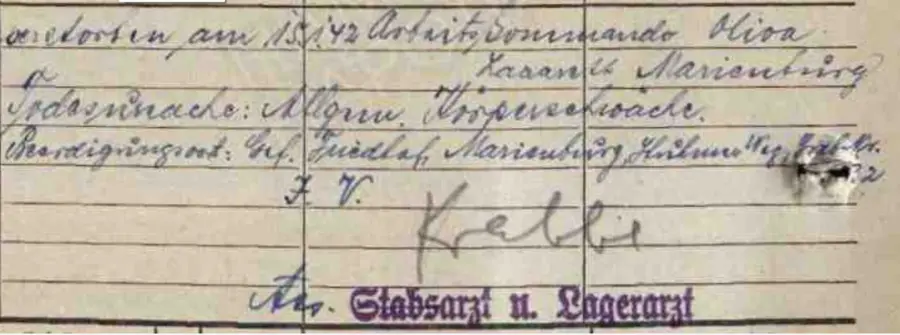 verstorben am 15.1.42 Arbeitskommando Oliva
Lazarett Marienburg
Todesursache: Allgem. Körperschwäche.
Beerdigungsort: Gef. Friedhof, Marienburg, Weg, Grab-Nr.
2
I. V.
Krabbe
Stabsarzt u. Lagerarzt